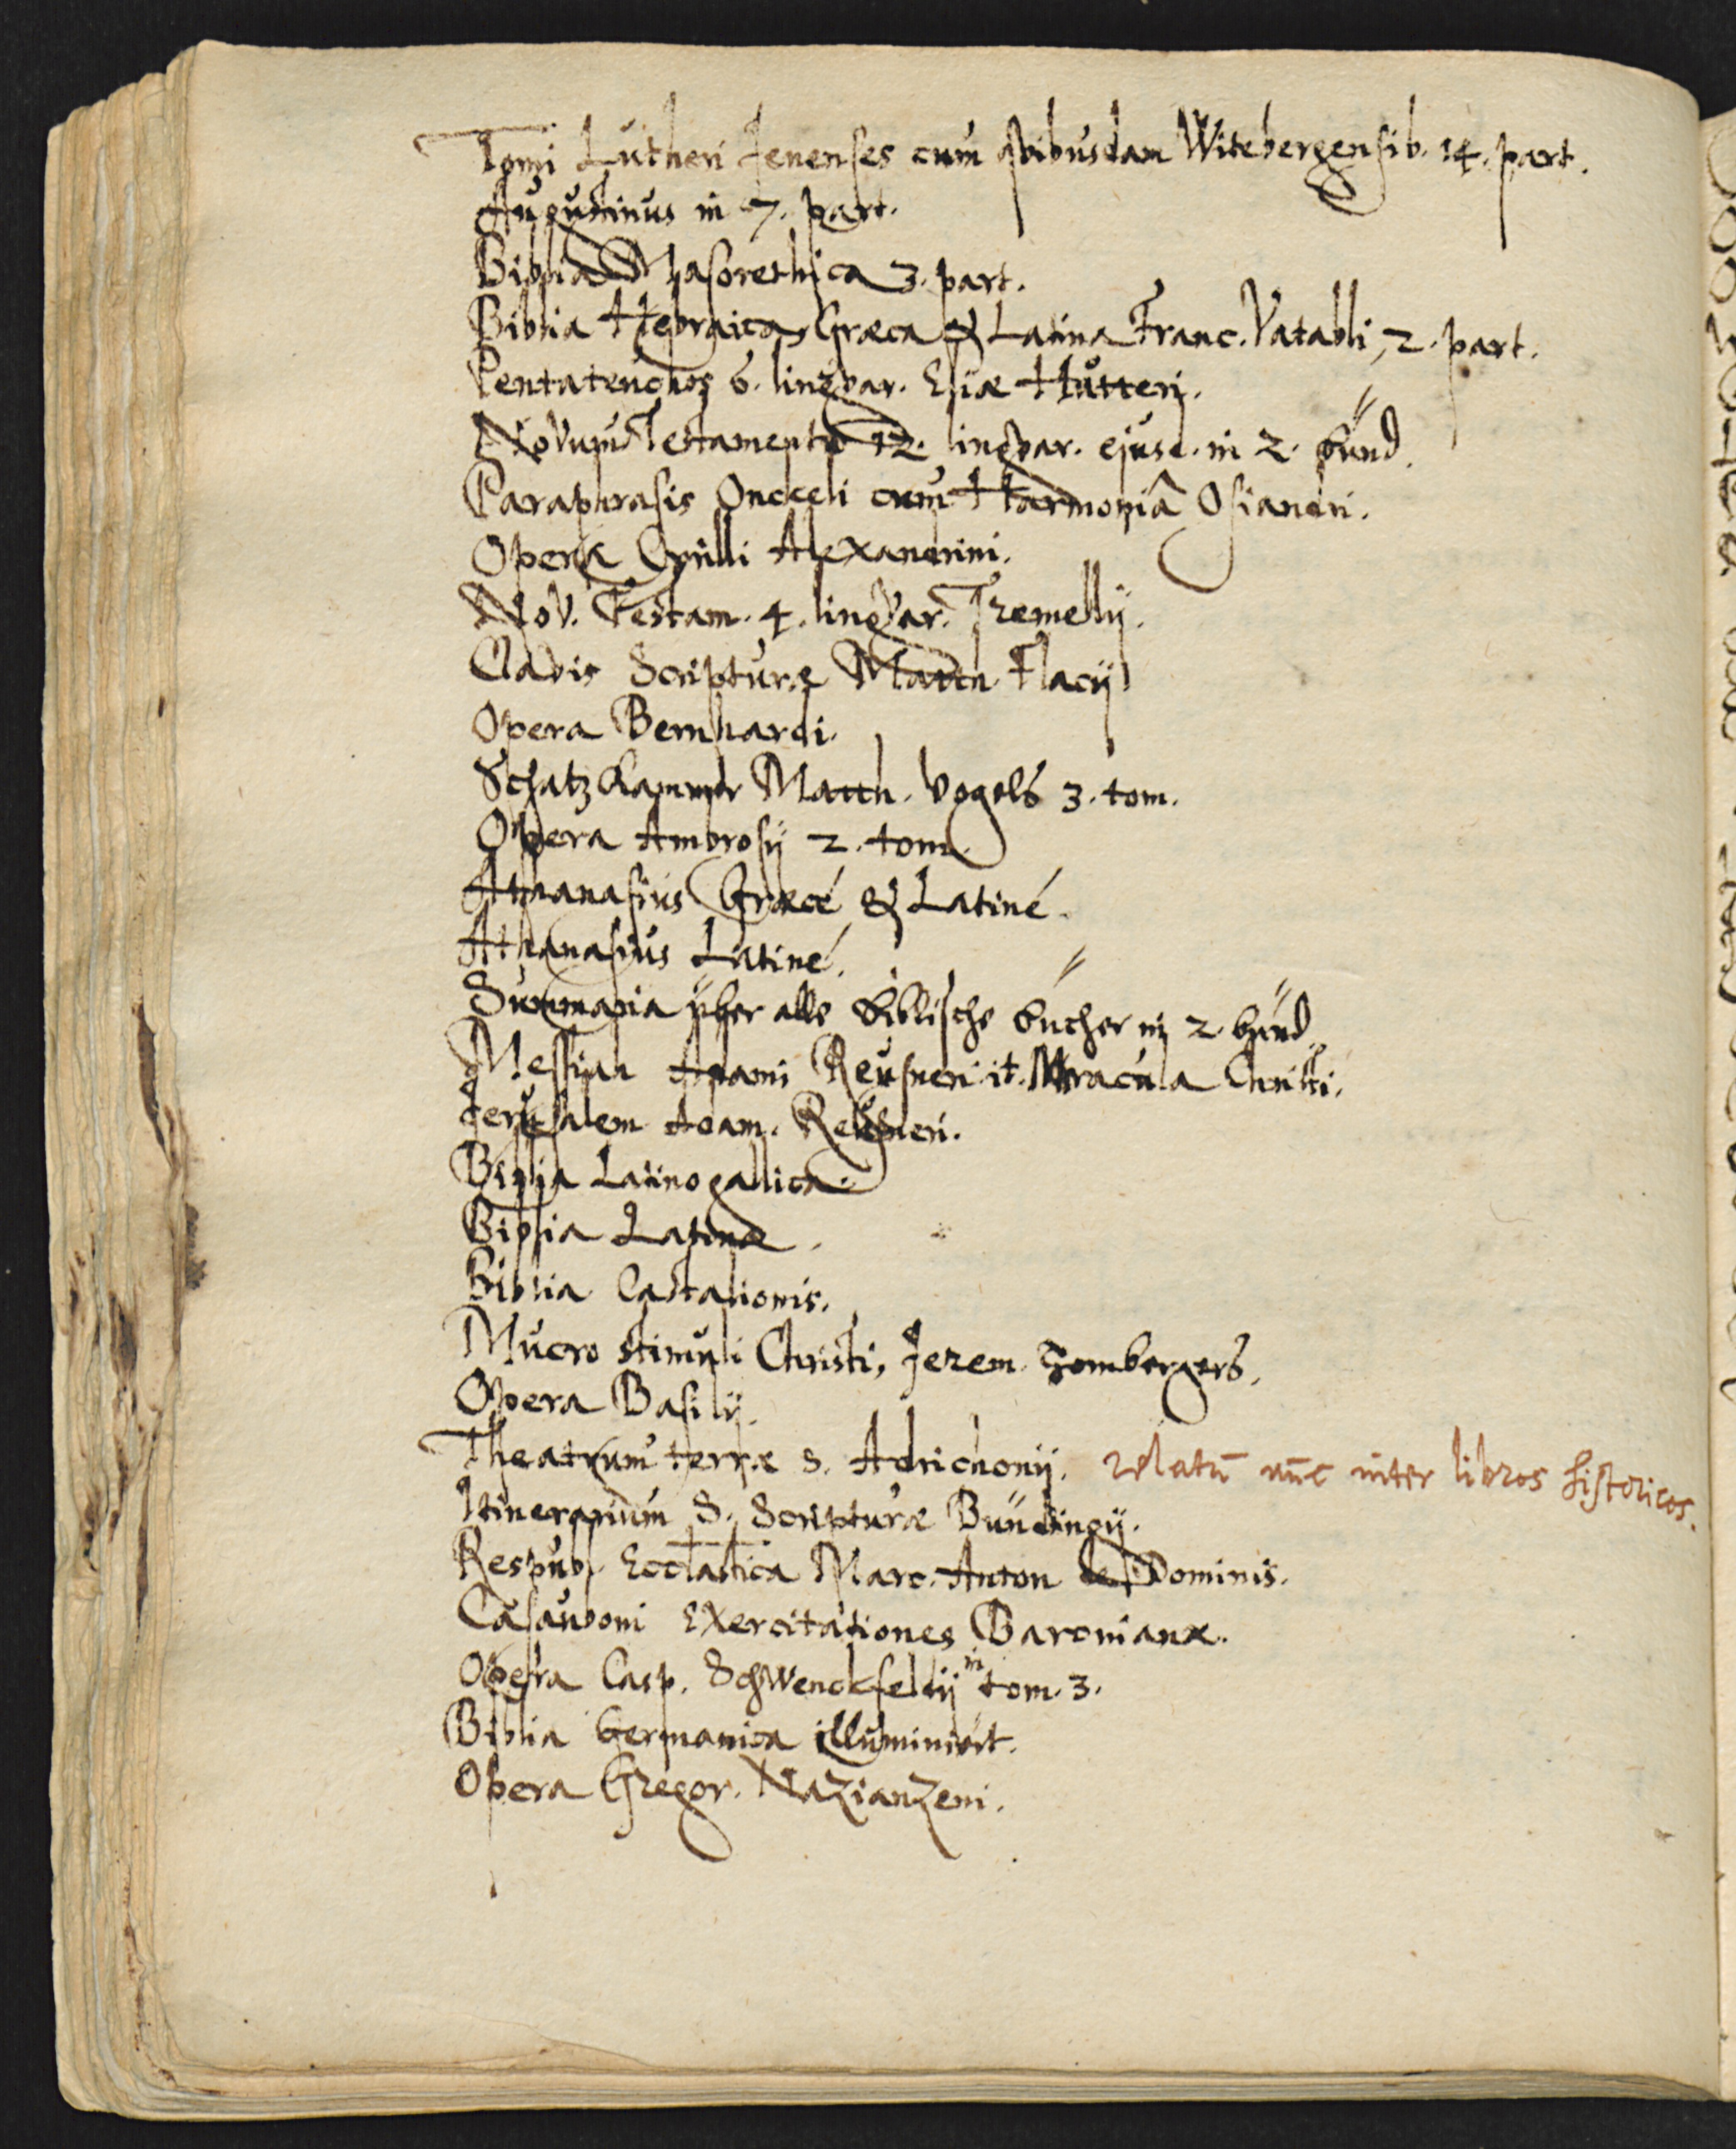 Tomi Lutheri Jenenses cum qvibusdam Witebergensib. 14. part.
Augustinus in 7. part.
Biblia Masorethica 3. part.
Biblia Hebraica, Græca & Latina Franc. Vatabli, 2. part.
Pentateuchos 6. lingvar. Eliæ Hutteri.
Novum Testamentū 12. lingvar. ejusd. in 2. bünd.
Paraphrasis Onckeli cum Harmoniâ Osiandri.
Opera Cyrilli Alexandrini.
Nov. Testam. 4. lingvar. Tremellij.
Clavis Scripturæ Matth. Flacij
Opera Bernhardi.
SchatzKammer Matth. Vogels 3. tom.
Opera Ambrosij 2. tom.
Athanasius Græcé & Latiné.
Athanasius Latiné.
Summaria über alle biblische bücher in 2. bünd.
Messiah Adami Reusneri it. Miracula Christi.
Jerusalem Adam. Reusneri.
Biblia Latinogallica.
Biblia Latina.
Biblia Castalionis.
Mucro stimuli Christi, Jerem. Hombergers.
Opera Basilij.
Theatrum terræ S. Adrichonij. relatū nūc inter libros historicos.
Itinerarium S. Scripturæ Bündingij.
Respub. Ecclastica Marc. Anton de Dominis.
Casauboni Exercitationes Baronianæ.
Opera Casp. Schwenckfeldij in tom. 3.
Biblia Germanica illuminirt.
Opera Gregor. Nazianzeni.